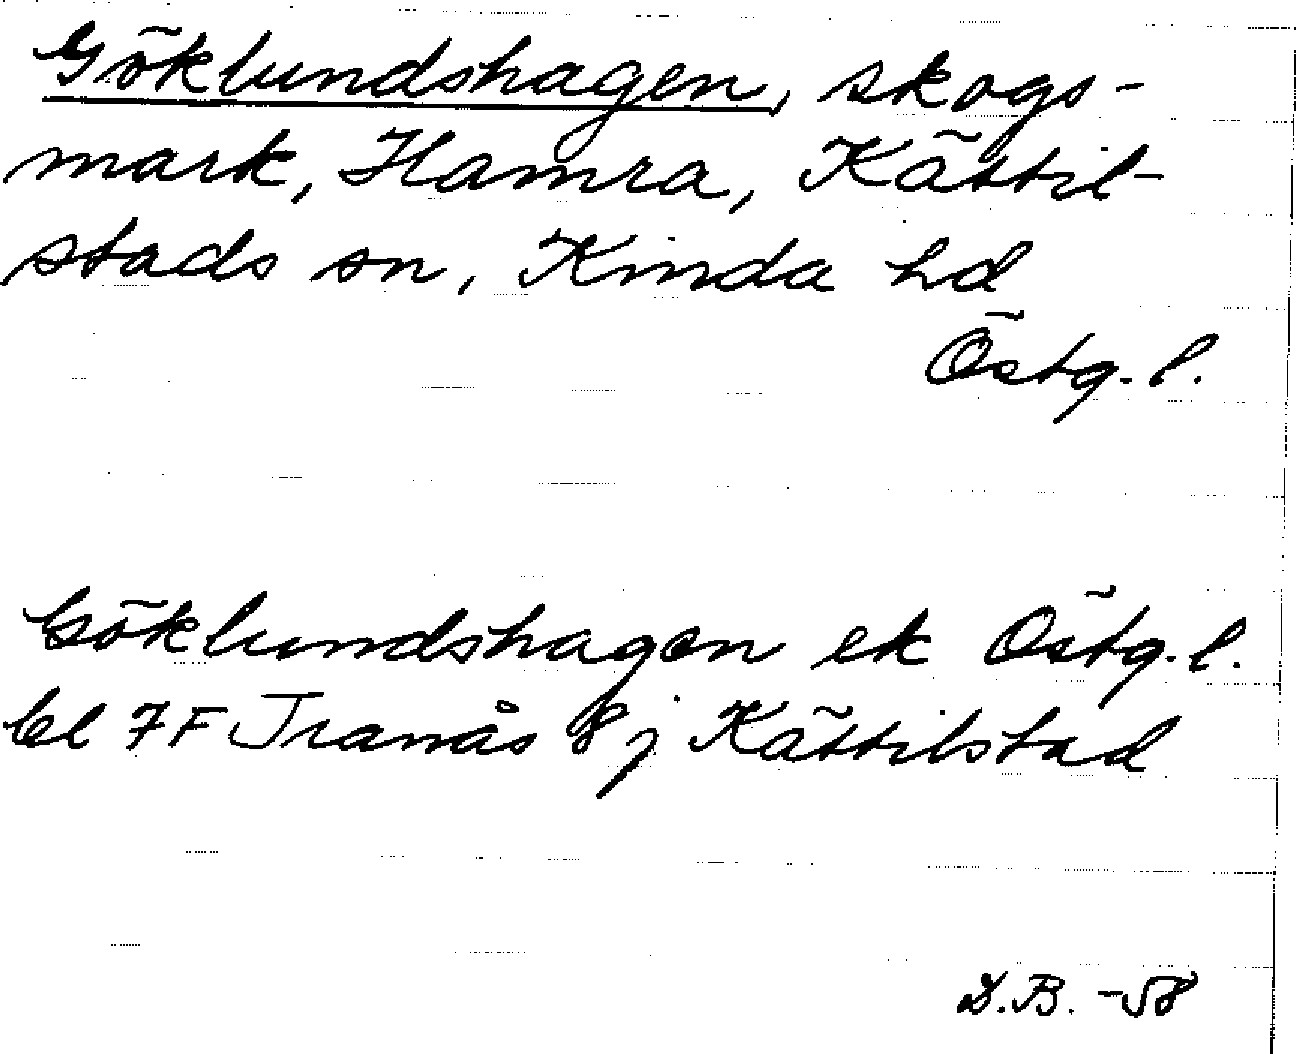 Göklundshagen, skogs-
mark, Hamra, Kättil-
stads sn, Kinda hd
Östg. l.
Göklundshagen ek Östg. l.
bl 7F Tranås 8j Kättilstad
D.B. -58